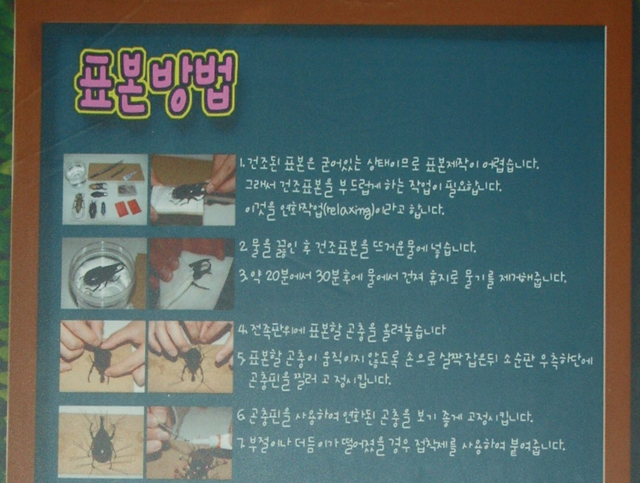 표본방법
1. 건조된 표본은 굳어있는 상태이므로 표본제작이 어렵습니다.
그래서 건조표본을 부드럽게 하는 작업이 필요합니다.
이것을 연화작업(relaxing)이라고 합니다.
2. 물을 끓인 후 건조표본을 뜨거운물에 넣습니다.
3. 약 20분에서 30분후에 물에서 건져 휴지로 물기를 제거해줍니다.
4. 전족판위에 표본할 곤충을 올려놓습니다
5. 표본할 곤충이 움직이지 않도록 손으로 살짝 잡은뒤 소순판 우측하단에
곤충핀을 찔러 고정시킵니다.
6. 곤충핀을 사용하여 연화된 곤충을 보기 좋게 고정시킵니다.
7. 부절이나 더듬이가 떨어졌을 경우 접착제를 사용하여 붙여줍니다.